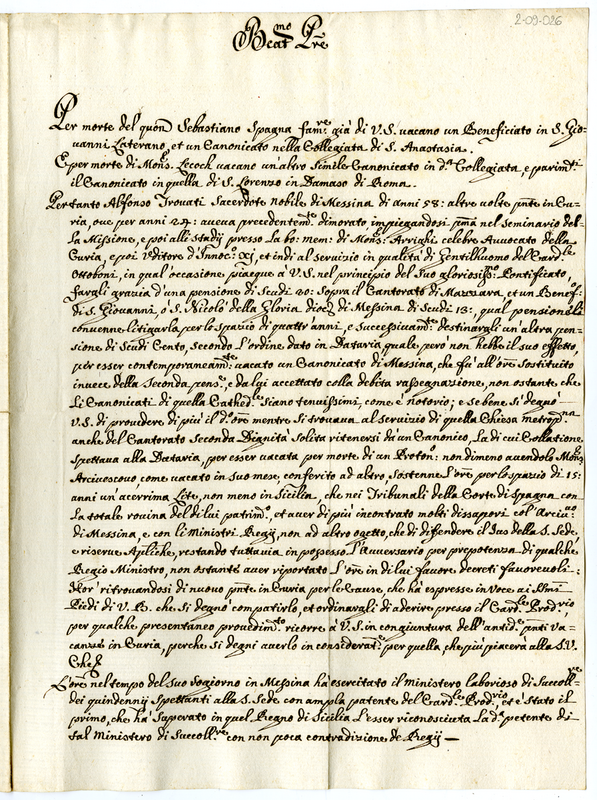 2-09-026
Beat.mo Pre
Per morte del quon Sebastiano Spagna fam.re già di V.S. vacano un Beneficiato in S. Gio=
vanni Laterano, et un Canonicato nella Collegiata di S. Anastasia.
E per morte di Mons. Lecoch vacano un'altro simile Canonicato in d.a Collegiata, e parim.ti
il Canonicato in quella di S. Lorenzo in Damaso di Roma.
Per tanto Alfonso Trovati Sacerdote nobile di Messina di anni 58: altre volte pnte in Cu=
ria, oue per anni 24: aueua precedentem.te dimorato impiegandosi pma nel seminario del=
la Missione, e poi alli studij presso la bo: mem: di Mons. Arrighi celebre Auuocato della
Curia, e poi V.ditore d'Innoc.o XI, et indi al seruizio in qualità di Gentilhuomo del Card.le
Ottoboni, in qual occasione piacque a V.S. nel principio del Suo gloriosiss.o Pontificato,
fargli grazia d'una pensione di Scudi 20: sopra il Cantorato di Mazzara, et un Benef.o
di S. Giovanni, o S. Nicolò della Gloria dioc. di Messina di Scudi 13:, qual pensione li
conuenne litigarla per lo spazio di quattr'anni, e successiuam.te destinargli un'altra pen=
sione di Scudi Cento, secondo l'ordine dato in Dataria quale però non hebbe il suo effetto,
per esser contemporaneam.te uacato un Canonicato di Messina, che fu all'ore sostituito
inuece della seconda pens.e, e da lui accettato colla debita rassegnazione, non ostante che
li Canonicati di quella Cathed.le siano tenuissimi, come è notorio; e se bene si degnò
V.S. di prouedere di più il d.o ore mentre si trouaua al seruizio di quella Chiesa metrop.na
anche del Cantorato seconda Dignità solita ritenersi da un Canonico, la di cui Collatione
spettaua alla Dataria, per esser vacata per morte di un Proton.o: non dimeno auendolo Mons.
Arciuescouo, come vacato in suo mese, conferito ad altro, sostenne l'ore per lo spazio di 15:
anni un'acerrima Lite, non meno in Sicilia, che nei Tribunali della Corte di Spagna con
la totale rouina del di lui patrim.o, et auer di più incontrato molti dissapori col Arciu.uo
di Messina, e con li Ministri Regij, non ad altro ogetto, che di diffendere il Jus della S. Sede,
e riserue Apliche, restando tuttauia in possesso l'Auuersario per prepotenza di qualche
Regio Ministro, non ostante auer riportato l'ore in di lui fauore decreti fauoreuoli:
Hor' ritrouandosi di nuouo pnte in Curia per le Cause, che ha espresse in uoce ai SSmi
Piedi di V.B. che si degnò compatirlo, et ordinargli di aderire presso il Card.le Prod.rio
per qualche presentaneo prouedim.to ricorre a V.S. in congiuntura dell'antid.e pnti Va=
canze in Curia, perche si degni auerlo in considerat.e per quella, che più piacerà alla S.V.
Che &
L'ore nel tempo del suo sogiorno in Messina ha esercitato il ministero laborioso di Succoll.re
dei quindennij spettanti alla S. Sede con ampla patente del Card.le Prod.rio, et è stato il
primo, che ha superato in quel Regno di Sicilia l'esser riconosciuta la d.a patente di
tal Ministero di Succoll.re con non poca contradizione de Regij —